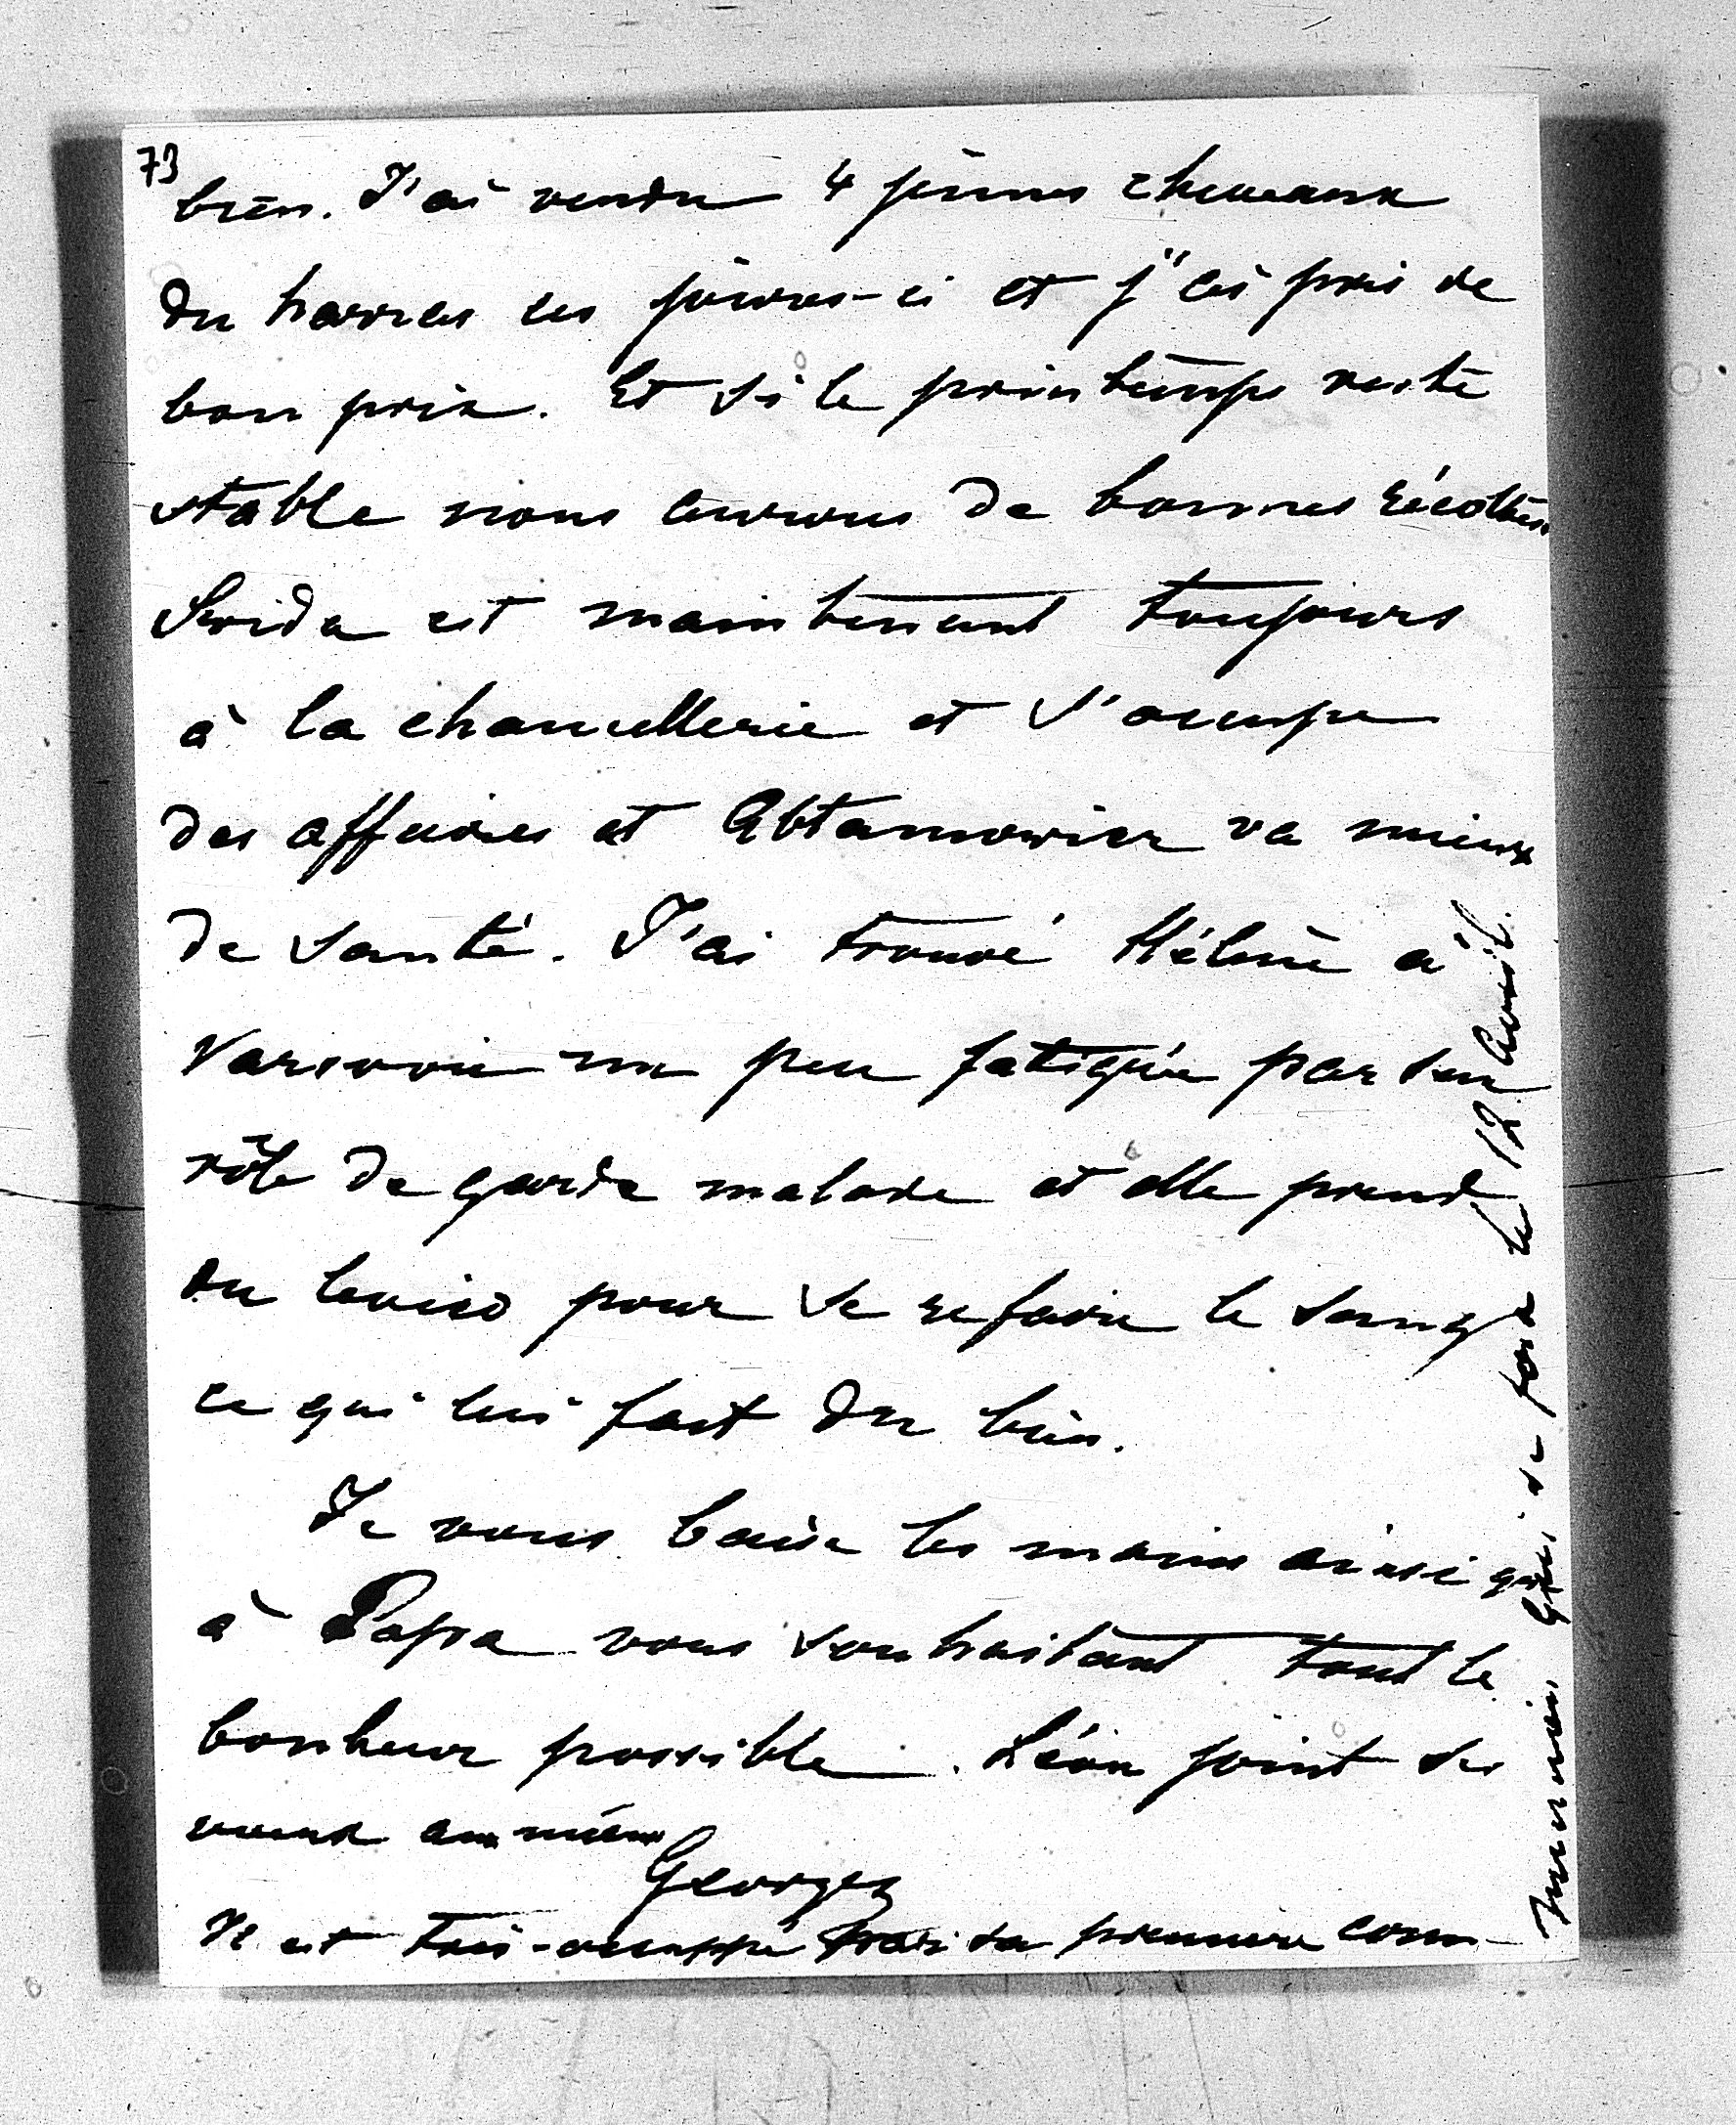 73
bien. J'ai vendu 4 jeunes chevaux
du harras ces jours-ci et j'ai pris de
bon prix. Et si le printemps reste
stable nous aurons de bonnes récoltes.
est maintenant toujours
à la chancellerie et s'occupe
des affaires et va mieux
de santé. J'ai trouvé Hélène à
Varsovie un peu fatiguée par son
rôle de garde malade et elle prend
du pour se refaire le sang
ce qui lui fait du bien.
Je vous baise les mains ainsi qu'
à Papa vous souhaitant tout le
bonheur possible. Léon joint ses
voeux aux miens
Georges
Il est très-occuppé par sa première com-
munion, qui se fait le 12 Avril.